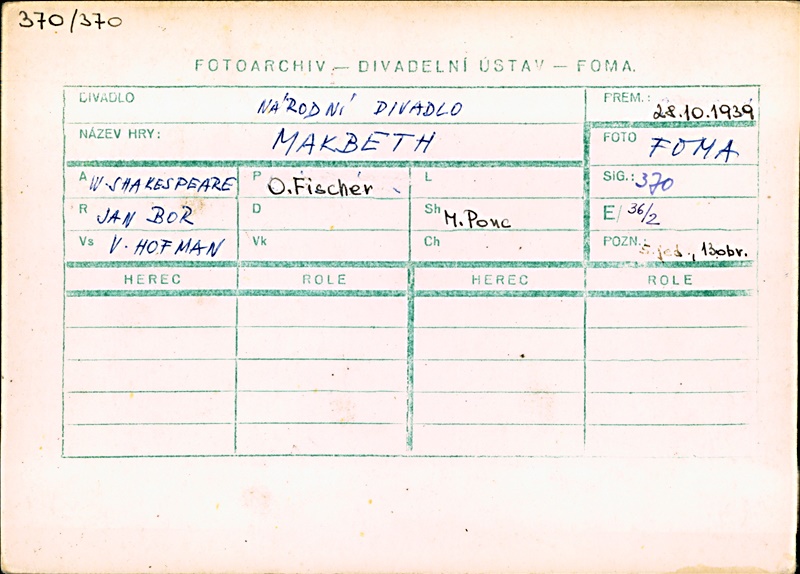 370/370
FOTOARCHIV – DIVADELNÍ ÚSTAV – FOMA.
DIVADLO NÁRODNÍ DIVADLO PREM.: 28.10.1939
NÁZEV HRY: MAKBETH FOTO FOMA
A W. SHAKESPEARE P O. Fischer L SIG.: 370
R JAN BOR D Sh M. Ponc E/ 36/2
Vs V. HOFMAN Vk Ch POZN.: 5 jed., 13 obr.
HEREC ROLE HEREC ROLE